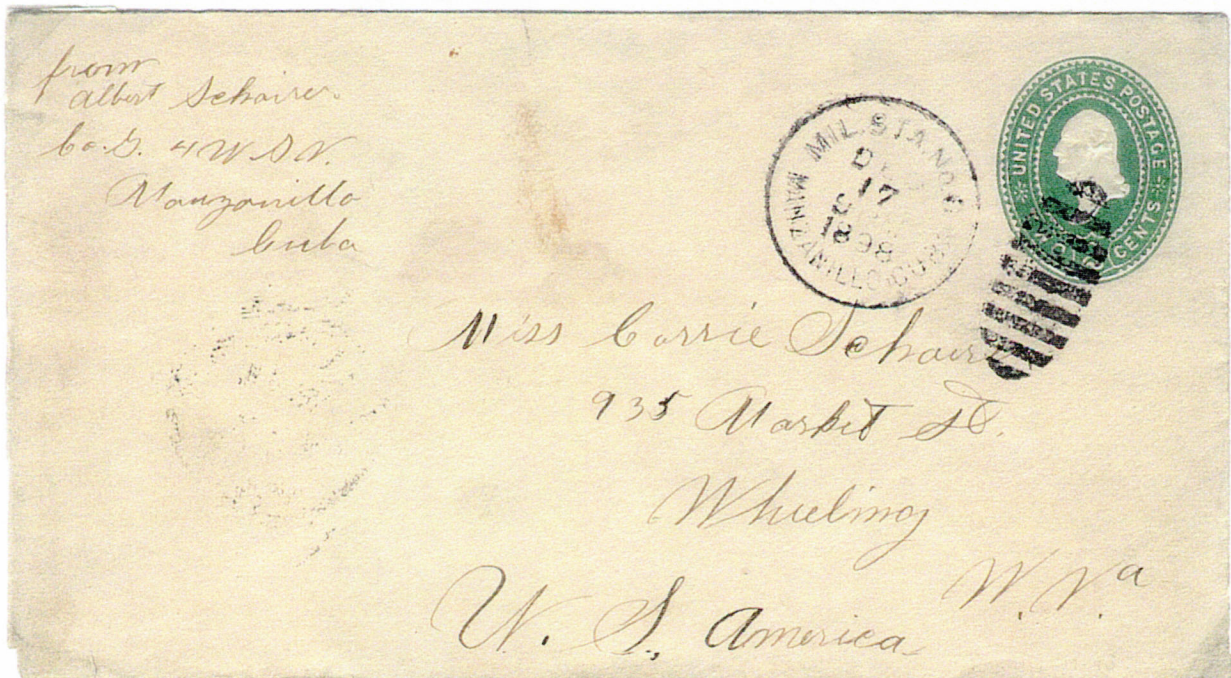 from
Albert Schairer
Co. G. 4 U S V.
Manzanillo
Cuba
MIL. STA. NO. 6
DEC
17
1898
MINZANILLO, CUBA
UNITED STATES POSTAGE
TWO CENTS
Miss Carrie Schairer
935 Market St.
Wheeling
W. Va
U. S. America